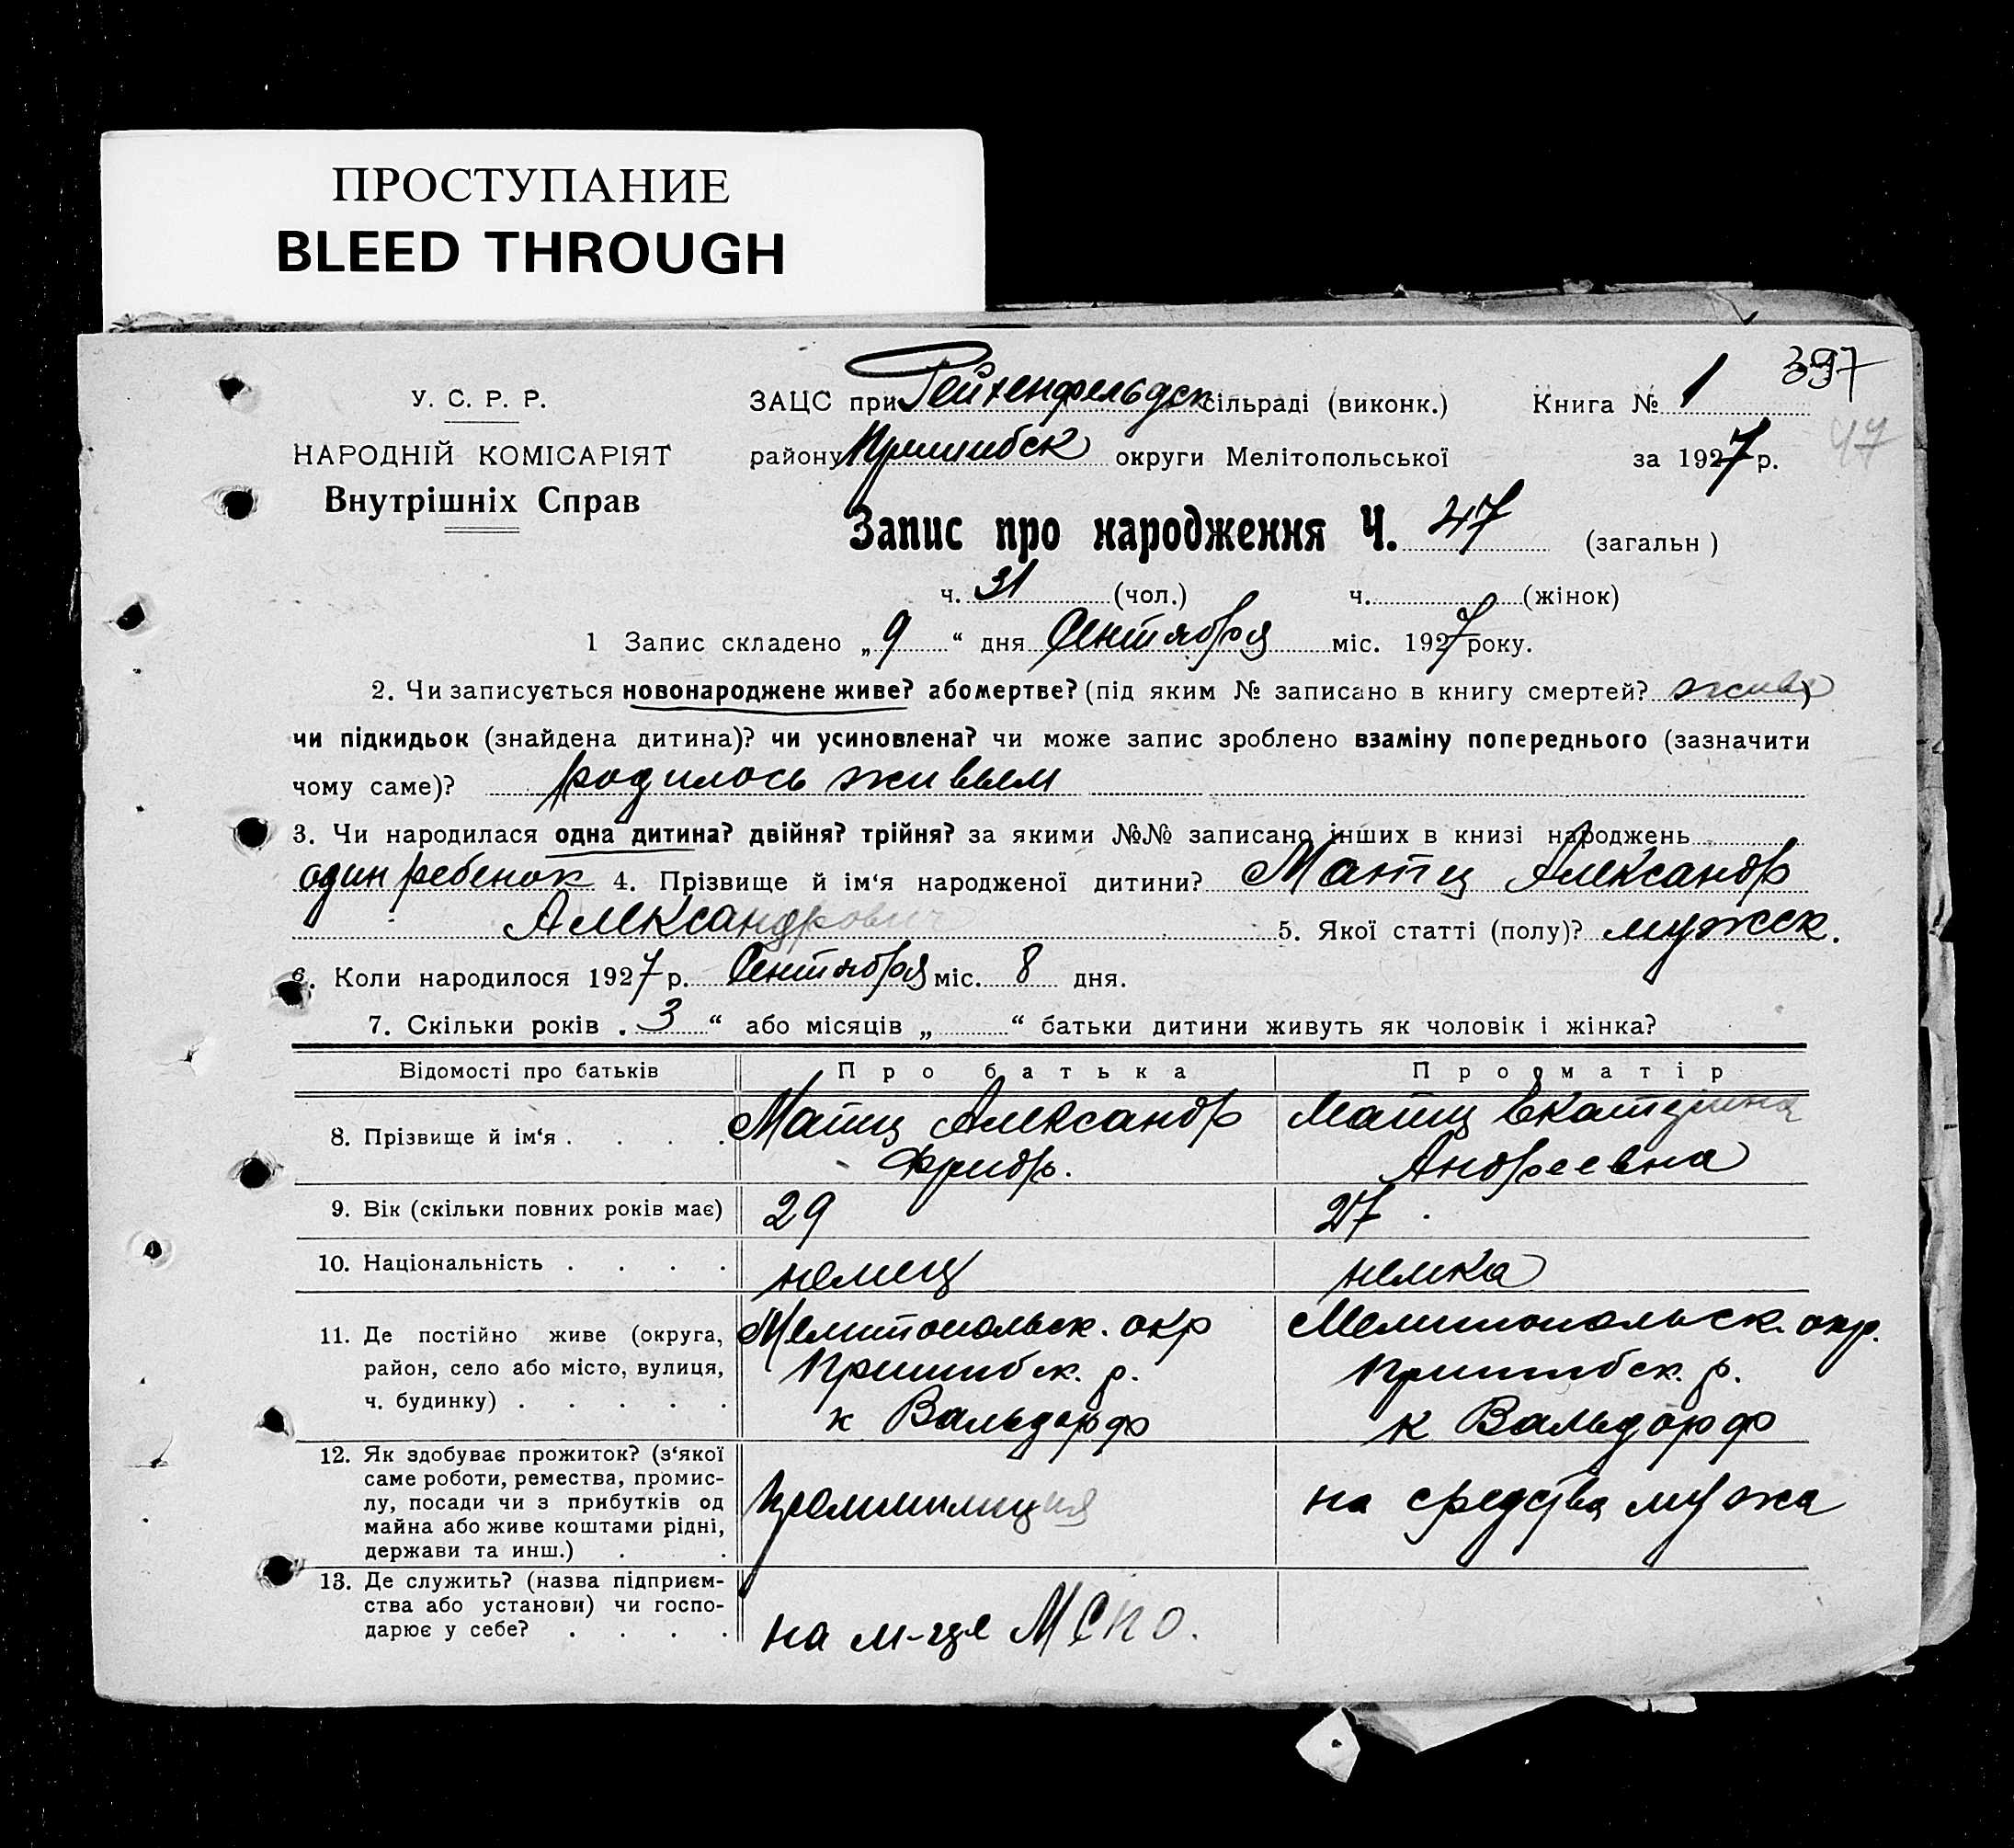 ПРОСТУПАНИЕ
BLEED THROUGH
397
У. С. Р. Р.
ЗАЦС при Рейхенфельдск сільраді (виконк.) Книга № 1
47
НАРОДНІЙ КОМІСАРІЯТ
району Пришибск округи Мелітопольської за 1927 р.
Внутрішніх Справ
Запис про народження Ч. 47 (загальн )
ч. 31 (чол.) ч. (жінок)
1 Запис складено „ 9 “ дня Сентября міс. 1927 року.
2. Чи записується новонароджене живе? або мертве? (під яким № записано в книгу смертей? живе)
чи підкидьок (знайдена дитина)? чи усиновлена? чи може запис зроблено взаміну попереднього (зазначити
чому саме)? родилось живым
3. Чи народилася одна дитина? двійня? трійня? за якими №№ записано інших в книзі народжень
один ребенок 4. Прізвище й ім‘я народженої дитини? Матц Александр
Александрович 5. Якої статті (полу)? мужск.
6. Коли народилося 1927 р. Сентября міс. 8 дня.
7. Скільки років „ 3 “ або місяців „ “ батьки дитини живуть як чоловік і жінка?
Відомості про батьків Про батька Про матір
8. Прізвище й ім‘я . . . . Матц Александр Матц Екатерина
Фридр. Андреевна
9. Вік (скільки повних років має) 29 27
10. Національність . . . . немец немка
11. Де постійно живе (округа, Мелитопольск. окр Мелитопольск. окр.
район, село або місто, вулиця, Пришибск. р. Пришибск. р.
ч. будинку) . . . . . к Вальдорф к Вальдорф
12. Як здобуває прожиток? (з‘якої
саме роботи, ремества, промис-
лу, посади чи з прибутків од на средства мужа
майна або живе коштами рідні,
держави та инш.) . .
13. Де служить? (назва підприєм-
ства або установи) чи госпо-
дарює у себе? . . . . на м-це МСПО.